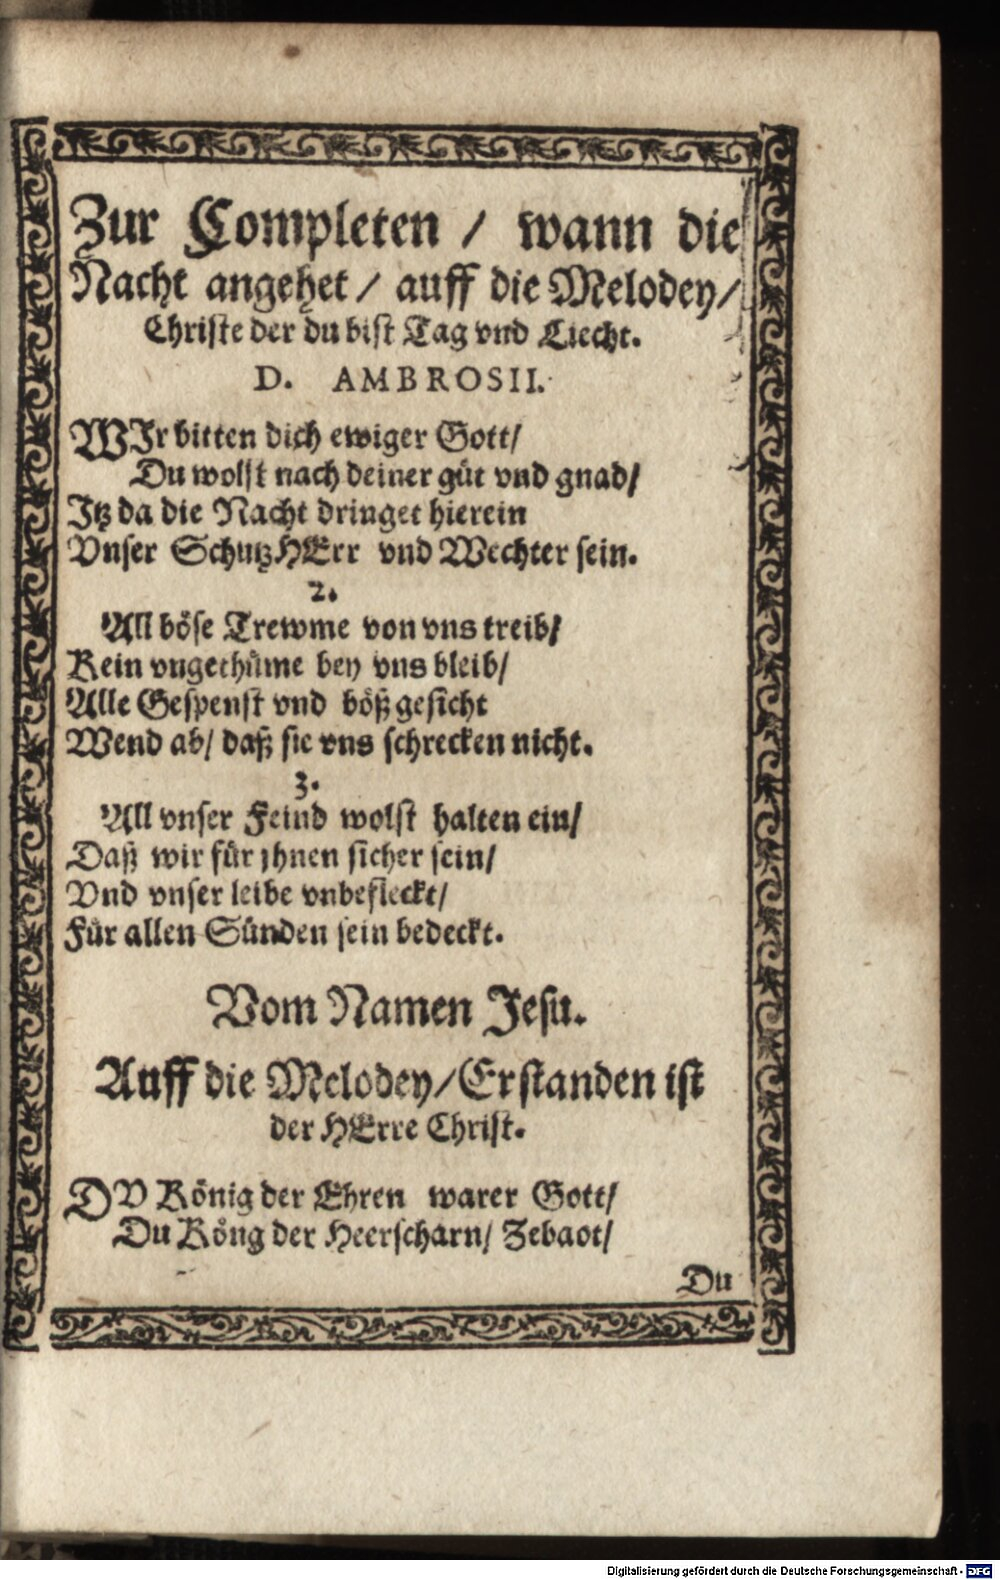 Zur Completen / wann die
Nacht angehet / auff die Melodey /
Christe der du bist Tag vnd Liecht.
D. AMBROSII.
WIr bitten dich ewiger Gott /
Du wolst nach deiner güt vnd gnad /
Itz da die Nacht dringet hierein
Vnser SchutzHErr vnd Wechter sein.
2.
All böse Trewme von vns treib /
Kein vngethüme bey vns bleib /
Alle Gespenst vnd böß gesicht
Wend ab / daß sie vns schrecken nicht.
3.
All vnser Feind wolst halten ein /
Daß wir für jhnen sicher sein /
Vnd vnser leibe vnbefleckt /
Für allen Sünden sein bedeckt.
Vom Namen Jesu.
Auff die Melodey / Erstanden ist
der HErre Christ.
DV König der Ehren warer Gott /
Du Köng der Heerscharn / Zebaot /
Du
Digitalisierung gefördert durch die Deutsche Forschungsgemeinschaft - DFG